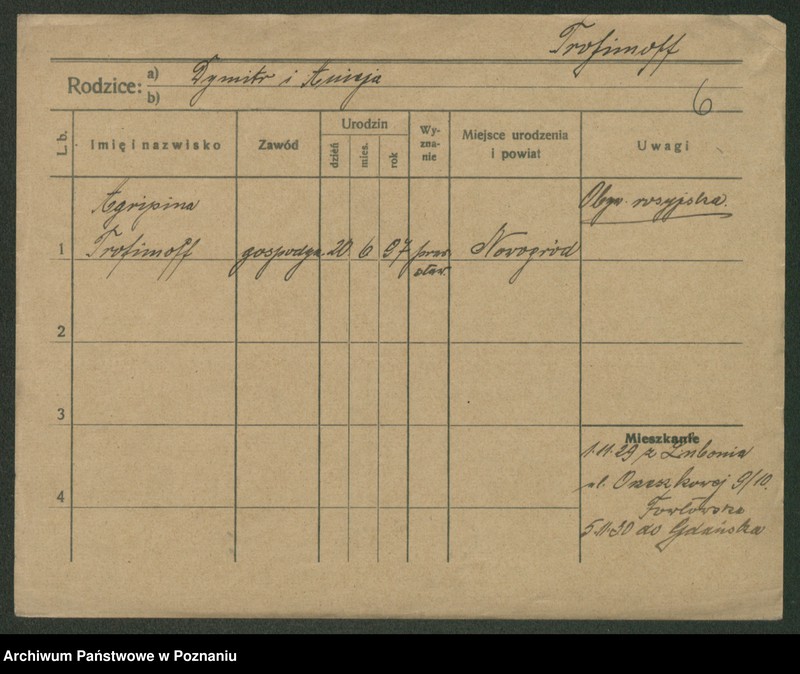 Trofimoff
Rodzice: a) Dymitr i
b)
6
L. b.
Imię i nazwisko
Zawód
Urodzin
dzień
mies.
rok
Wy-
zna-
nie
Miejsce urodzenia
i powiat
Uwagi
Agripina
Obyw. rosyjska.
1
Trofimoff
gospodyn. 20. 6 97 praw
sław.
Novogród
2
3
Mieszkanie
1.11.29 z Lubonia
ul. Orzeszkowej 9/10.
4
5.11.30 do Gdańska
Archiwum Państwowe w Poznaniu